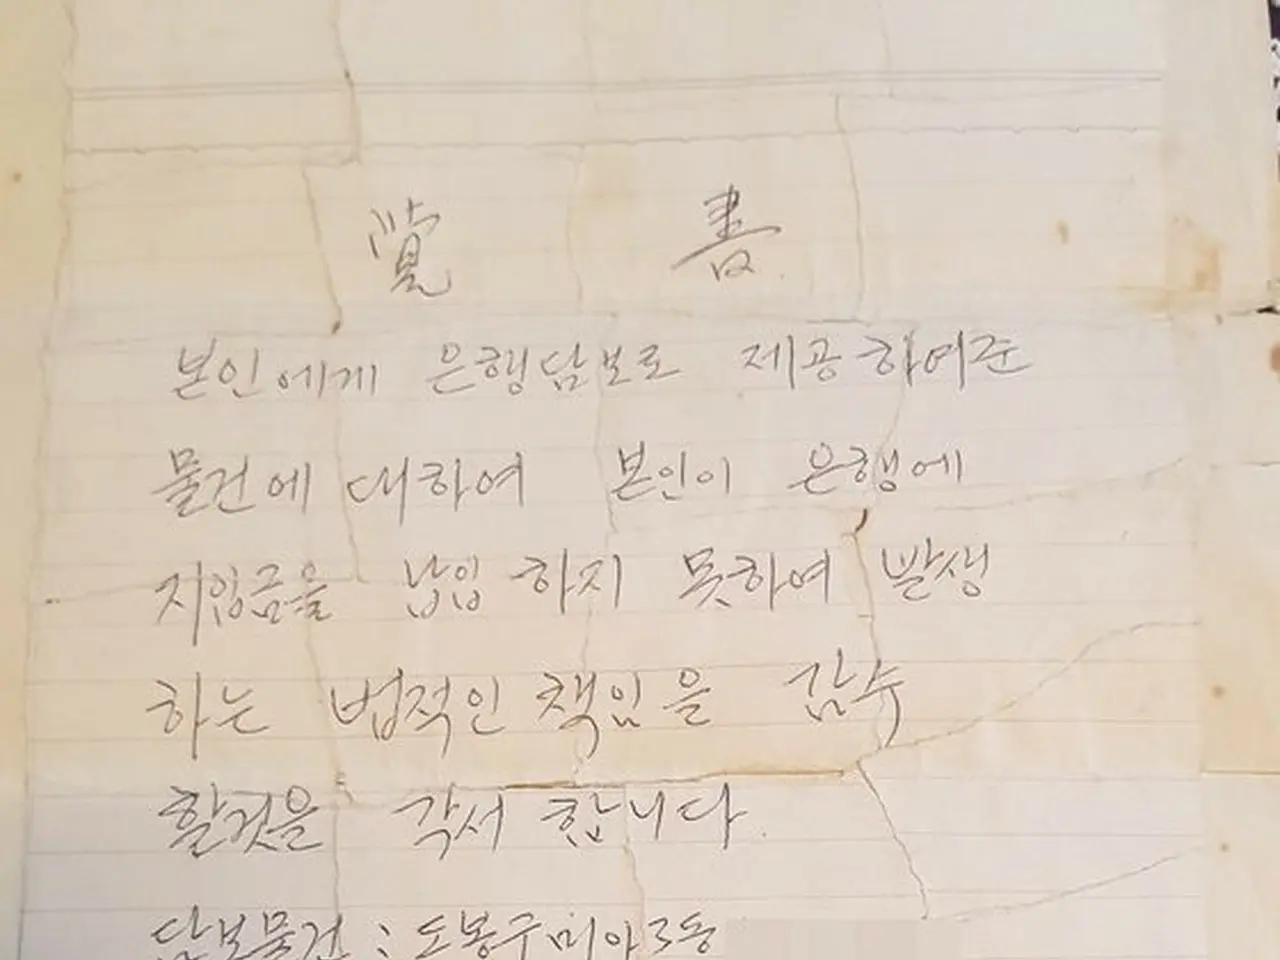 覚書
본인에게 은행담보로 제공하여준
물건에 대하여 본인이 은행에
지입금을 납입하지 못하여 발생
하는 법적인 책임을 감수
할것을 각서 합니다.
담보물건 : 도봉구미아3동